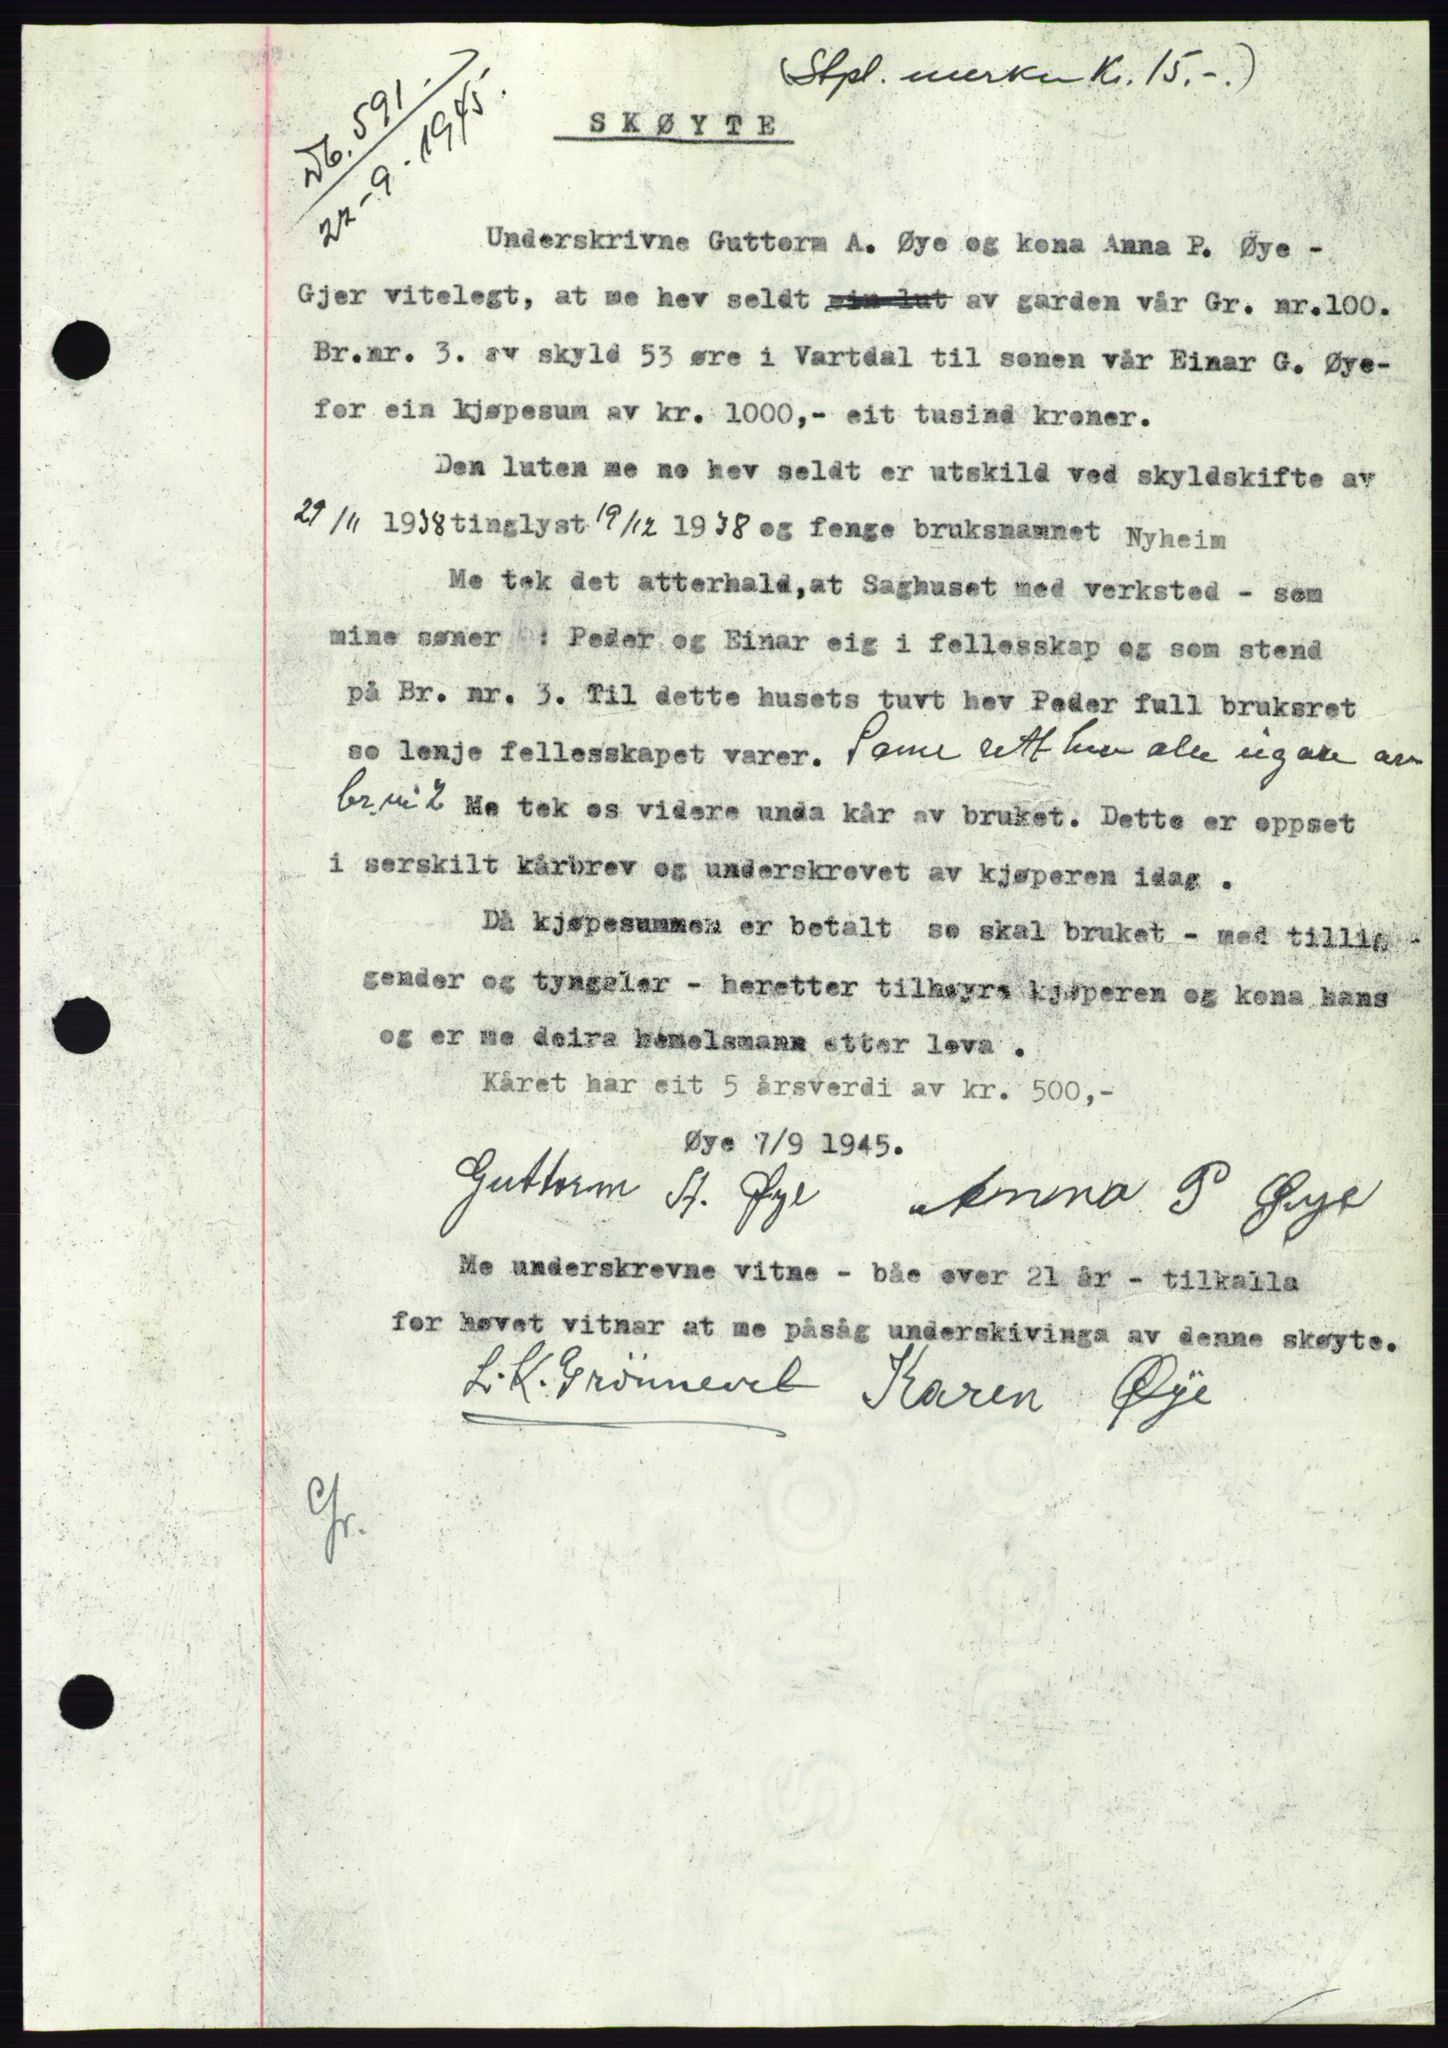 (Stpl. merke Kr. 15.-.)
Db. 591.
22-9-1945.
SKØYTE
Underskrivne Guttorm A. Øye og kona Anna P. Øye -
Gjer vitelegt, at me hev seldt min lut av garden vår Gr. nr.100.
Br.nr. 3. av skyld 53 øre i Vartdal til sonen vår Einar G. Øye-
for ein kjøpesum av kr. 1000,- eit tusind kroner.
Den luten me no hev seldt er utskild ved skyldskifte av
29/11 1938 tinglyst 19/12 1938 og fenge bruksnamnet Nyheim
Me tek det atterhald,at Saghuset med verksted - som
mine søner : Peder og Einar eig i fellesskap og som stend
på Br. nr. 3. Til dette husets tuvt hev Peder full bruksret
so lenje fellesskapet varer. Same rett hev alle eigare av
br.nr 2 Me tek os videre unda kår av bruket. Dette er oppset
i serskilt kårbrev og underskrevet av kjøperen idag .
Då kjøpesummen er betalt so skal bruket - med tillig-
gender og tyngsler - heretter tilhøyre kjøperen og kona hans
og er me deira hemelsmann etter lova .
Kåret har eit 5 årsverdi av kr. 500,-
Øye 7/9 1945.
Guttorm A. Øye Anna P Øye
Me underskrevne vitne - båe over 21 år - tilkalla
for høvet vitnar at me påsåg underskivinga av denne skøyte.
L. K. Grönnevet Karen Øye
Gr.